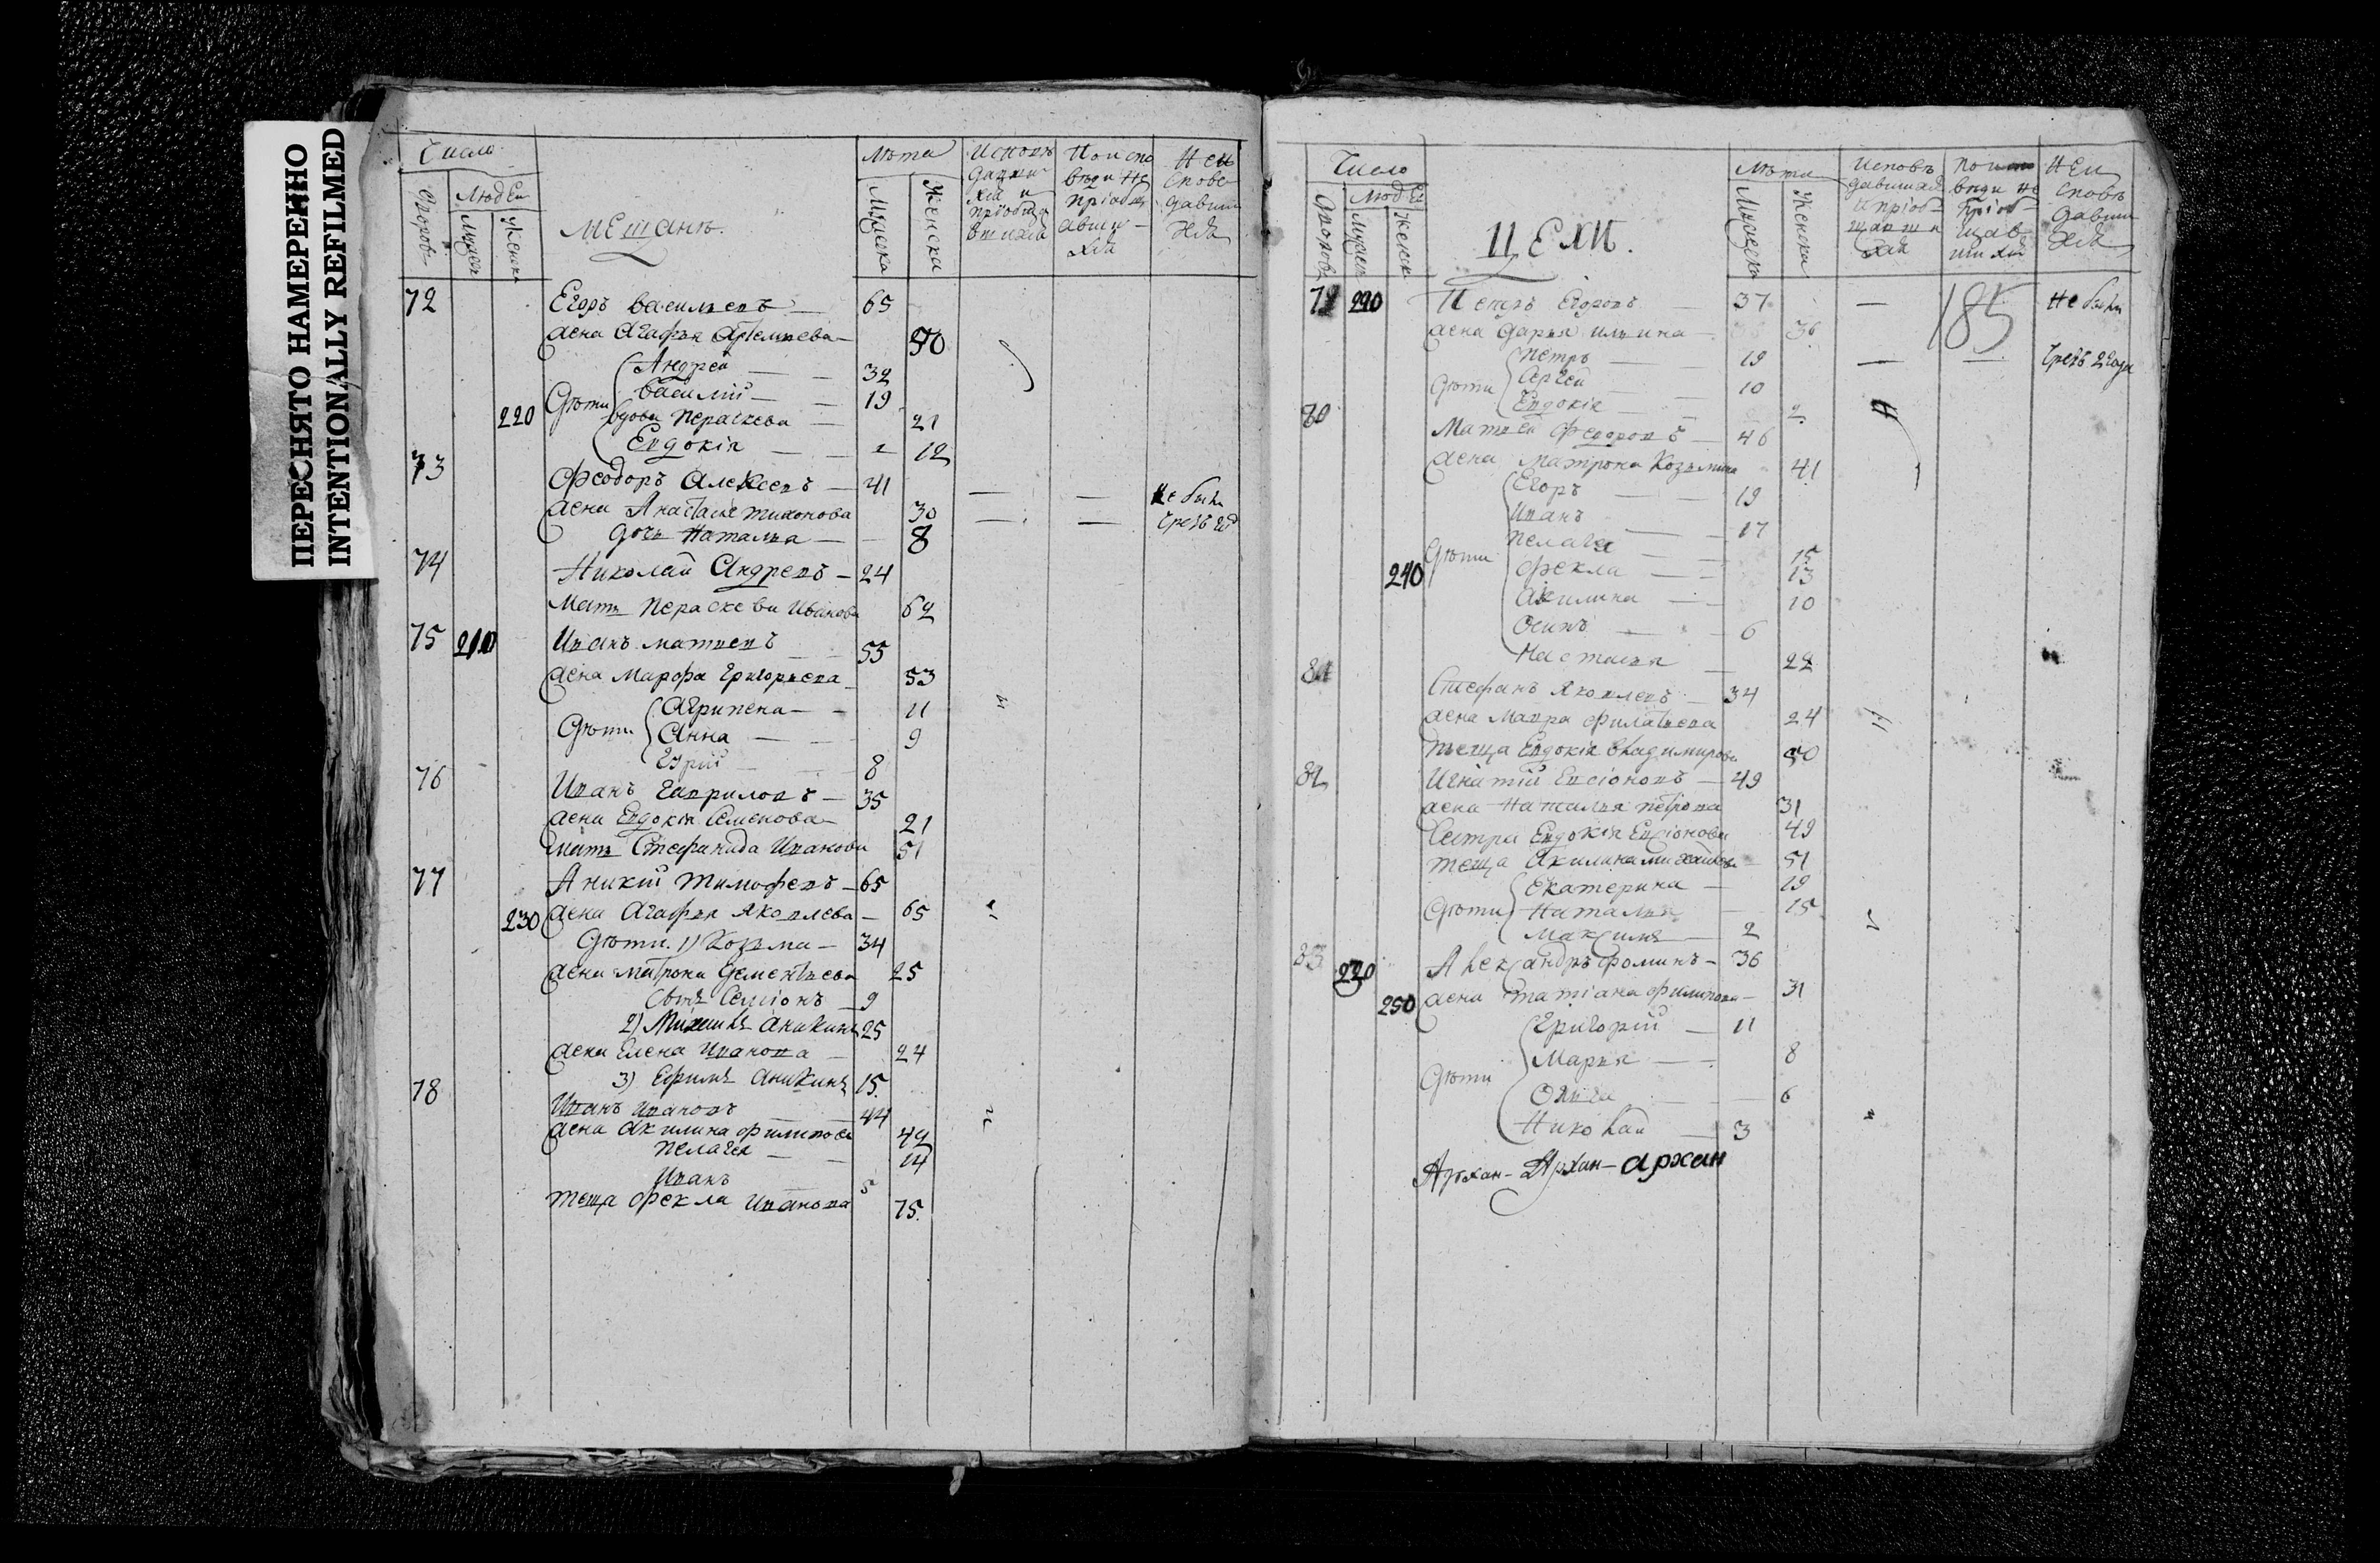 ПЕРЕСНЯТО НАМЕРЕННО
INTENTIONALLY REFILMED
Число
Людей
Дворовъ
Мужеск
Женска
мещанъ.
Лѣта
Мужеска
Женска
72 Егоръ васильевъ 65
жена Агафья Артемьева 50
Андрей 32
Дѣти Василий 19
220 вдова Параскева 21
Евдокія 12
73 Феодоръ Алексеевъ 41 не были
жена Анастасия тихонова 30
дочь Наталья 8
74 Николай Андреевъ 24
Мать Параскева Иванова 62
75 210 Иванъ матвеевъ 55
жена Марфа Григорьева 53
Агрипена 11
Дѣти Анна 9
8
76 Иванъ Гавриловъ 35
жена Евдокія Семенова 21
мать Стефанида Иванова 51
77 Аникій Тимофеевъ 65
230 жена Агафья Яковлева 65
Дѣти. 1) Козьма 34
жена матрона Дементьева 25
сынъ Семіонъ 9
2) Аникинъ 25
жена Елена Иванова 24
3) Ефимъ Аникинъ 15.
78 Иванъ Ивановъ 44
жена Акилина филипова 42
Пелагея 14
Иванъ 5
теща Фекла Иванова 75.
Число
Людей
Дворовъ
Мужеск
Женск
ЦЕХИ.
Лѣта
Мужеска
Женска
185
79 220 Петръ Егоровъ 37 не были
жена Дарья ильина 36
Петръ 19
Дѣти Сергей 10
Евдокія 2
80 Матвей Феодоровъ 46
жена Матрона Козьмина 41
Егоръ 19
Иванъ 17
Пелагея 15
240 Дѣти Фекла 13
Акилина 10
Осипъ 6
Настасья 22
81 Стефанъ Яковлевъ 34
жена Мавра Филатьева 24
теща Евдокія Владимирова 50
82 Игнатій Евсіоновъ 49
жена Наталья петрова 31
Сестра Евдокія Евсіонова 49
теща Акилина михайлова 51
Екатерина 19
Дѣти Наталья 15
Максимъ 2
83 230 Александръ фоминъ 36
250 жена татіана филипова 31
Григорій 11
Марья 8
Дѣти Ольга 6
Николай 3
Архан - Архан - архан